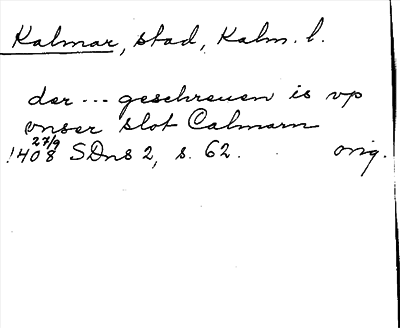 Kalmar, stad, Kalm. l.
der --- geschreuen is vp
vnser slot Calmarn
27/9
1408 SDns 2, s. 62. orig.